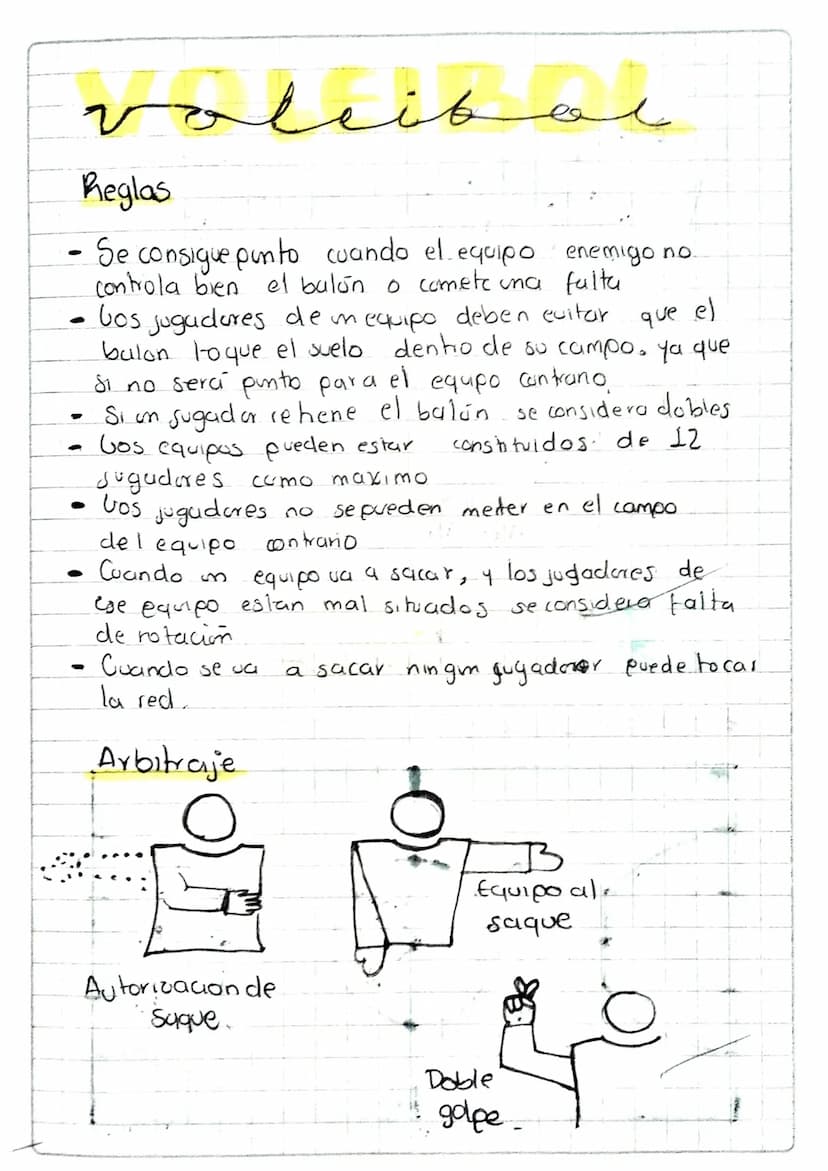 VOLEIBOL
voleibol
Reglas
- Se consigue punto cuando el equipo enemigo no
controla bien el balón o comete una falta
- Los jugadores de un equipo deben evitar que el
balon toque el suelo dentro de su campo, ya que
si no será punto para el equipo contrario
- Si un jugador retiene el balón se considera dobles
- Los equipos pueden estar constituidos de 12
jugadores como maximo
- Los jugadores no se pueden meter en el campo
del equipo contrario
- Cuando un equipo va a sacar, y los jugadores de
ese equipo estan mal situados se considera falta
de rotación
- Cuando se va a sacar ningun jugador puede tocar
la red.
Arbitraje
Equipo al
saque
Autorizacion de
Saque.
Doble
golpe.